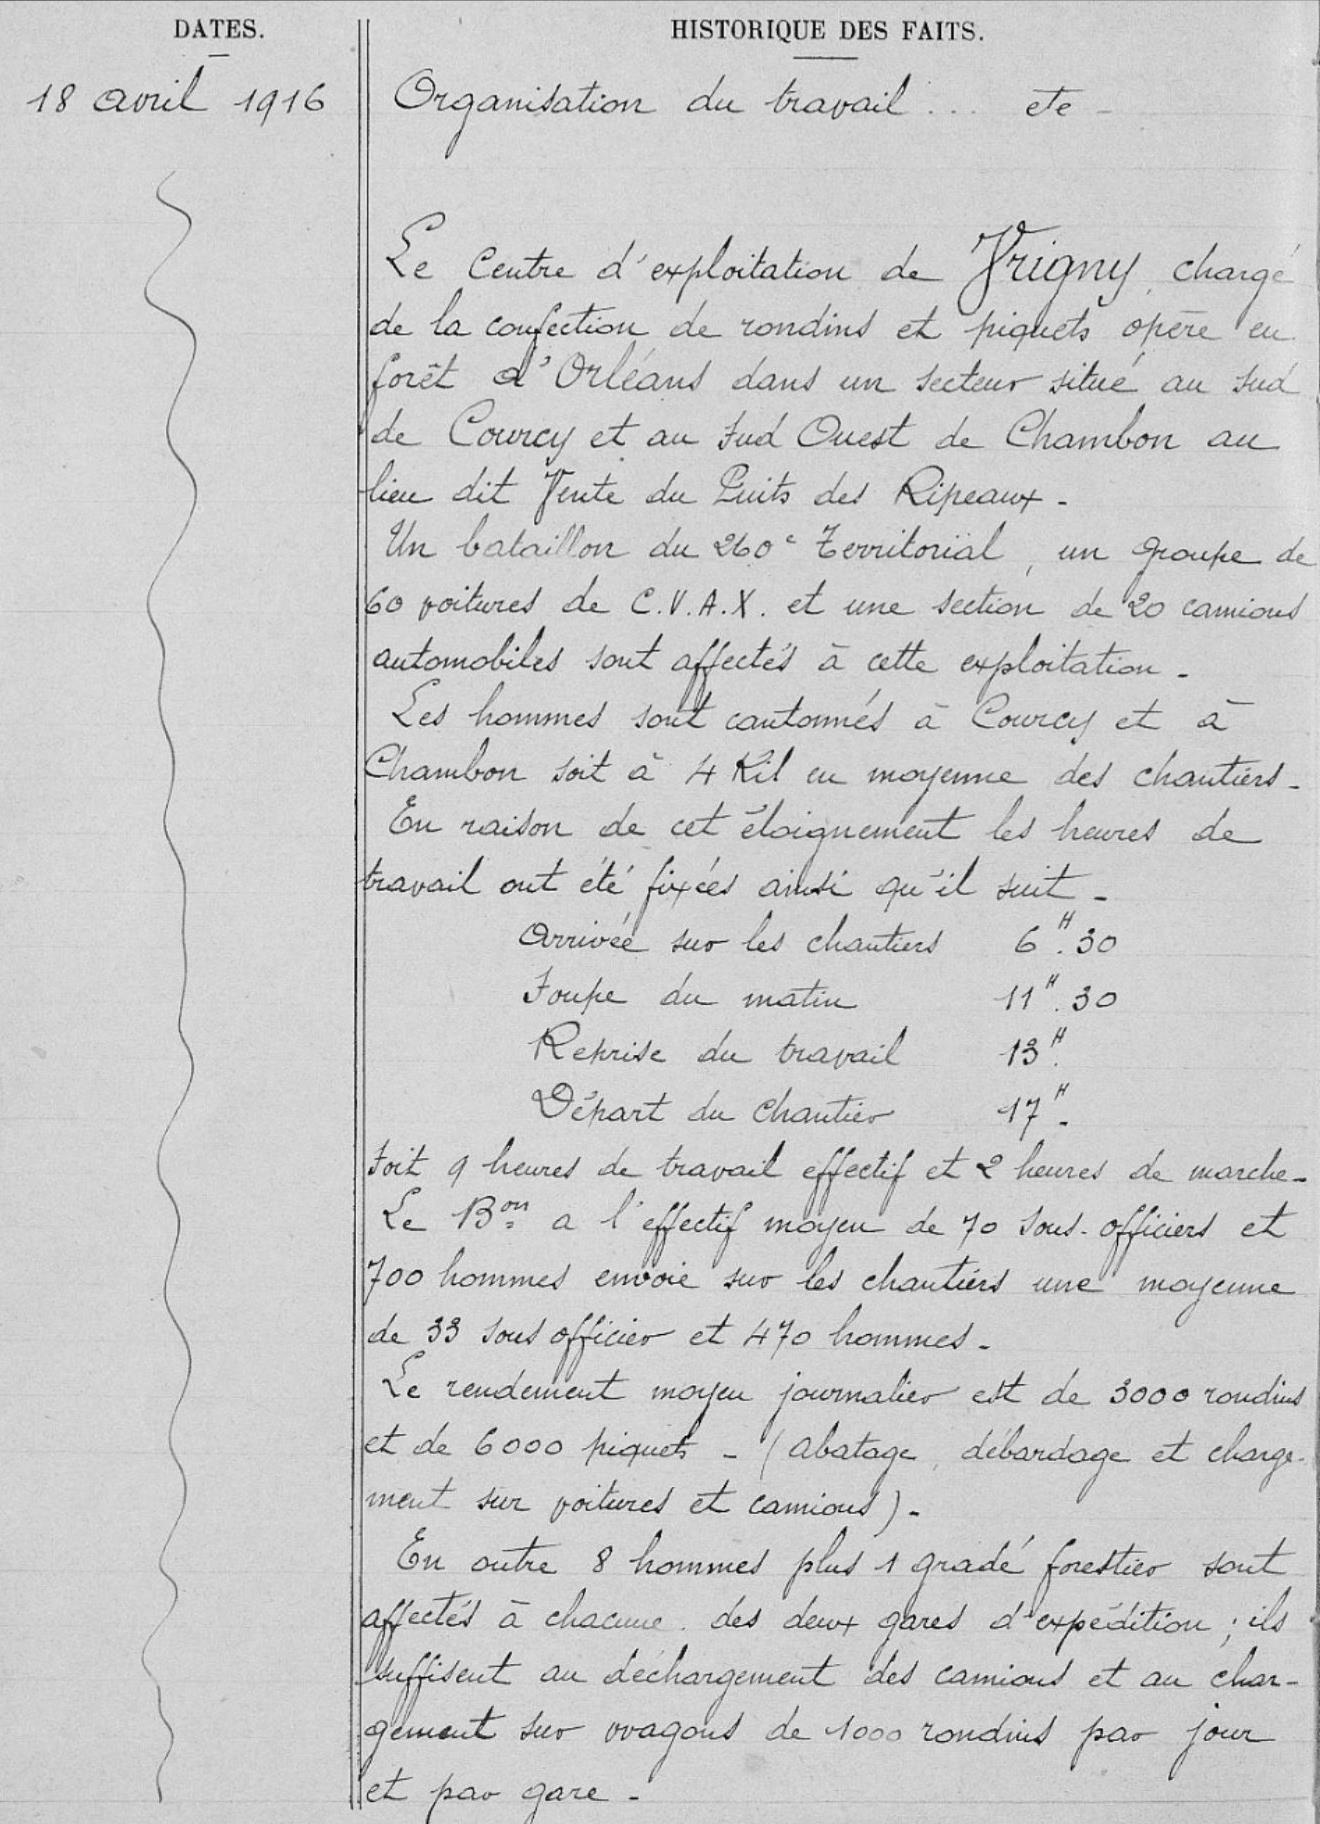 DATES.
HISTORIQUE DES FAITS.
18 avril 1916
Organisation du travail ... etc -
Le Centre d'exploitation de Vrigny, chargé
de la confection de rondins et piquets opère en
forêt d'Orléans dans un secteur situé au Sud
de Courcy et au Sud Ouest de Chambon au
lieu dit Vente du Puits des Ripeaux -
Un bataillon du 260e Territorial, un groupe de
60 voitures de C.V.A.X. et une section de 20 camions
automobiles sont affectés à cette exploitation -
Les hommes sont cantonnés à Courcy et à
Chambon soit à 4 Kil en moyenne des chantiers -
En raison de cet éloignement les heures de
travail ont été fixées ainsi qu'il suit -
Arrivée sur les chantiers 6H.30
Soupe du matin 11H.30
Reprise du travail 13H.
Départ du chantier 17H -
Soit 9 heures de travail effectif et 2 heures de marche -
Le Bon a l'effectif moyen de 70 sous-officiers et
700 hommes envoie sur les chantiers une moyenne
de 33 sous officier et 470 hommes -
Le rendement moyen journalier est de 3000 rondins
et de 6000 piquets - (abatage, débardage et charge-
ment sur voitures et camions) -
En outre 8 hommes plus 1 gradé forestier sont
affectés à chacune des deux gares d'expédition ; ils
suffisent au déchargement des camions et au char-
gement sur wagons de 1000 rondins par jour
et par gare -